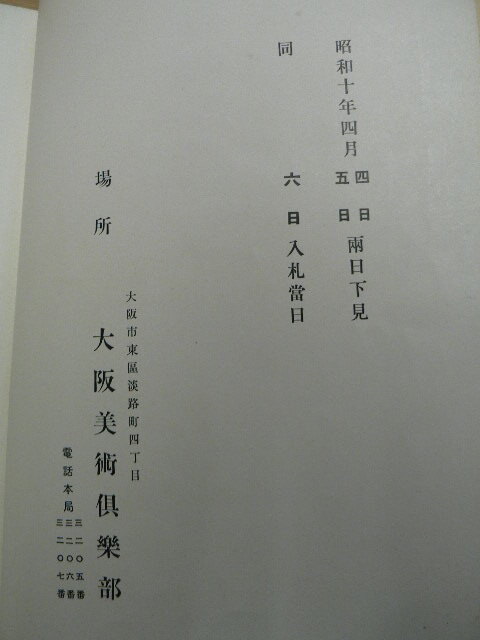 昭和十年四月
四日
五日
兩日下見
同
六日入札當日
場所
大阪市東區淡路町四丁目
大阪美術倶樂部
電話本局
三二〇五番
三二〇六番
三二〇七番